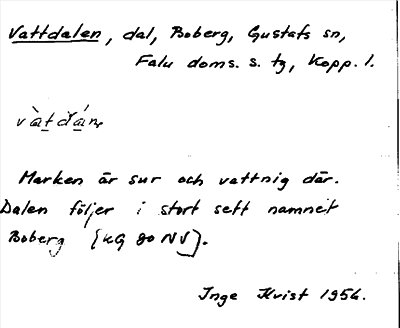 Vattdalen, dal, Boberg, Gustafs sn,
Falu doms. s. tg, Kopp. l.
Marken är sur och vattnig där.
Dalen följer i stort sett namnet
Boberg [KG 80 NV].
Inge Kvist 1956.